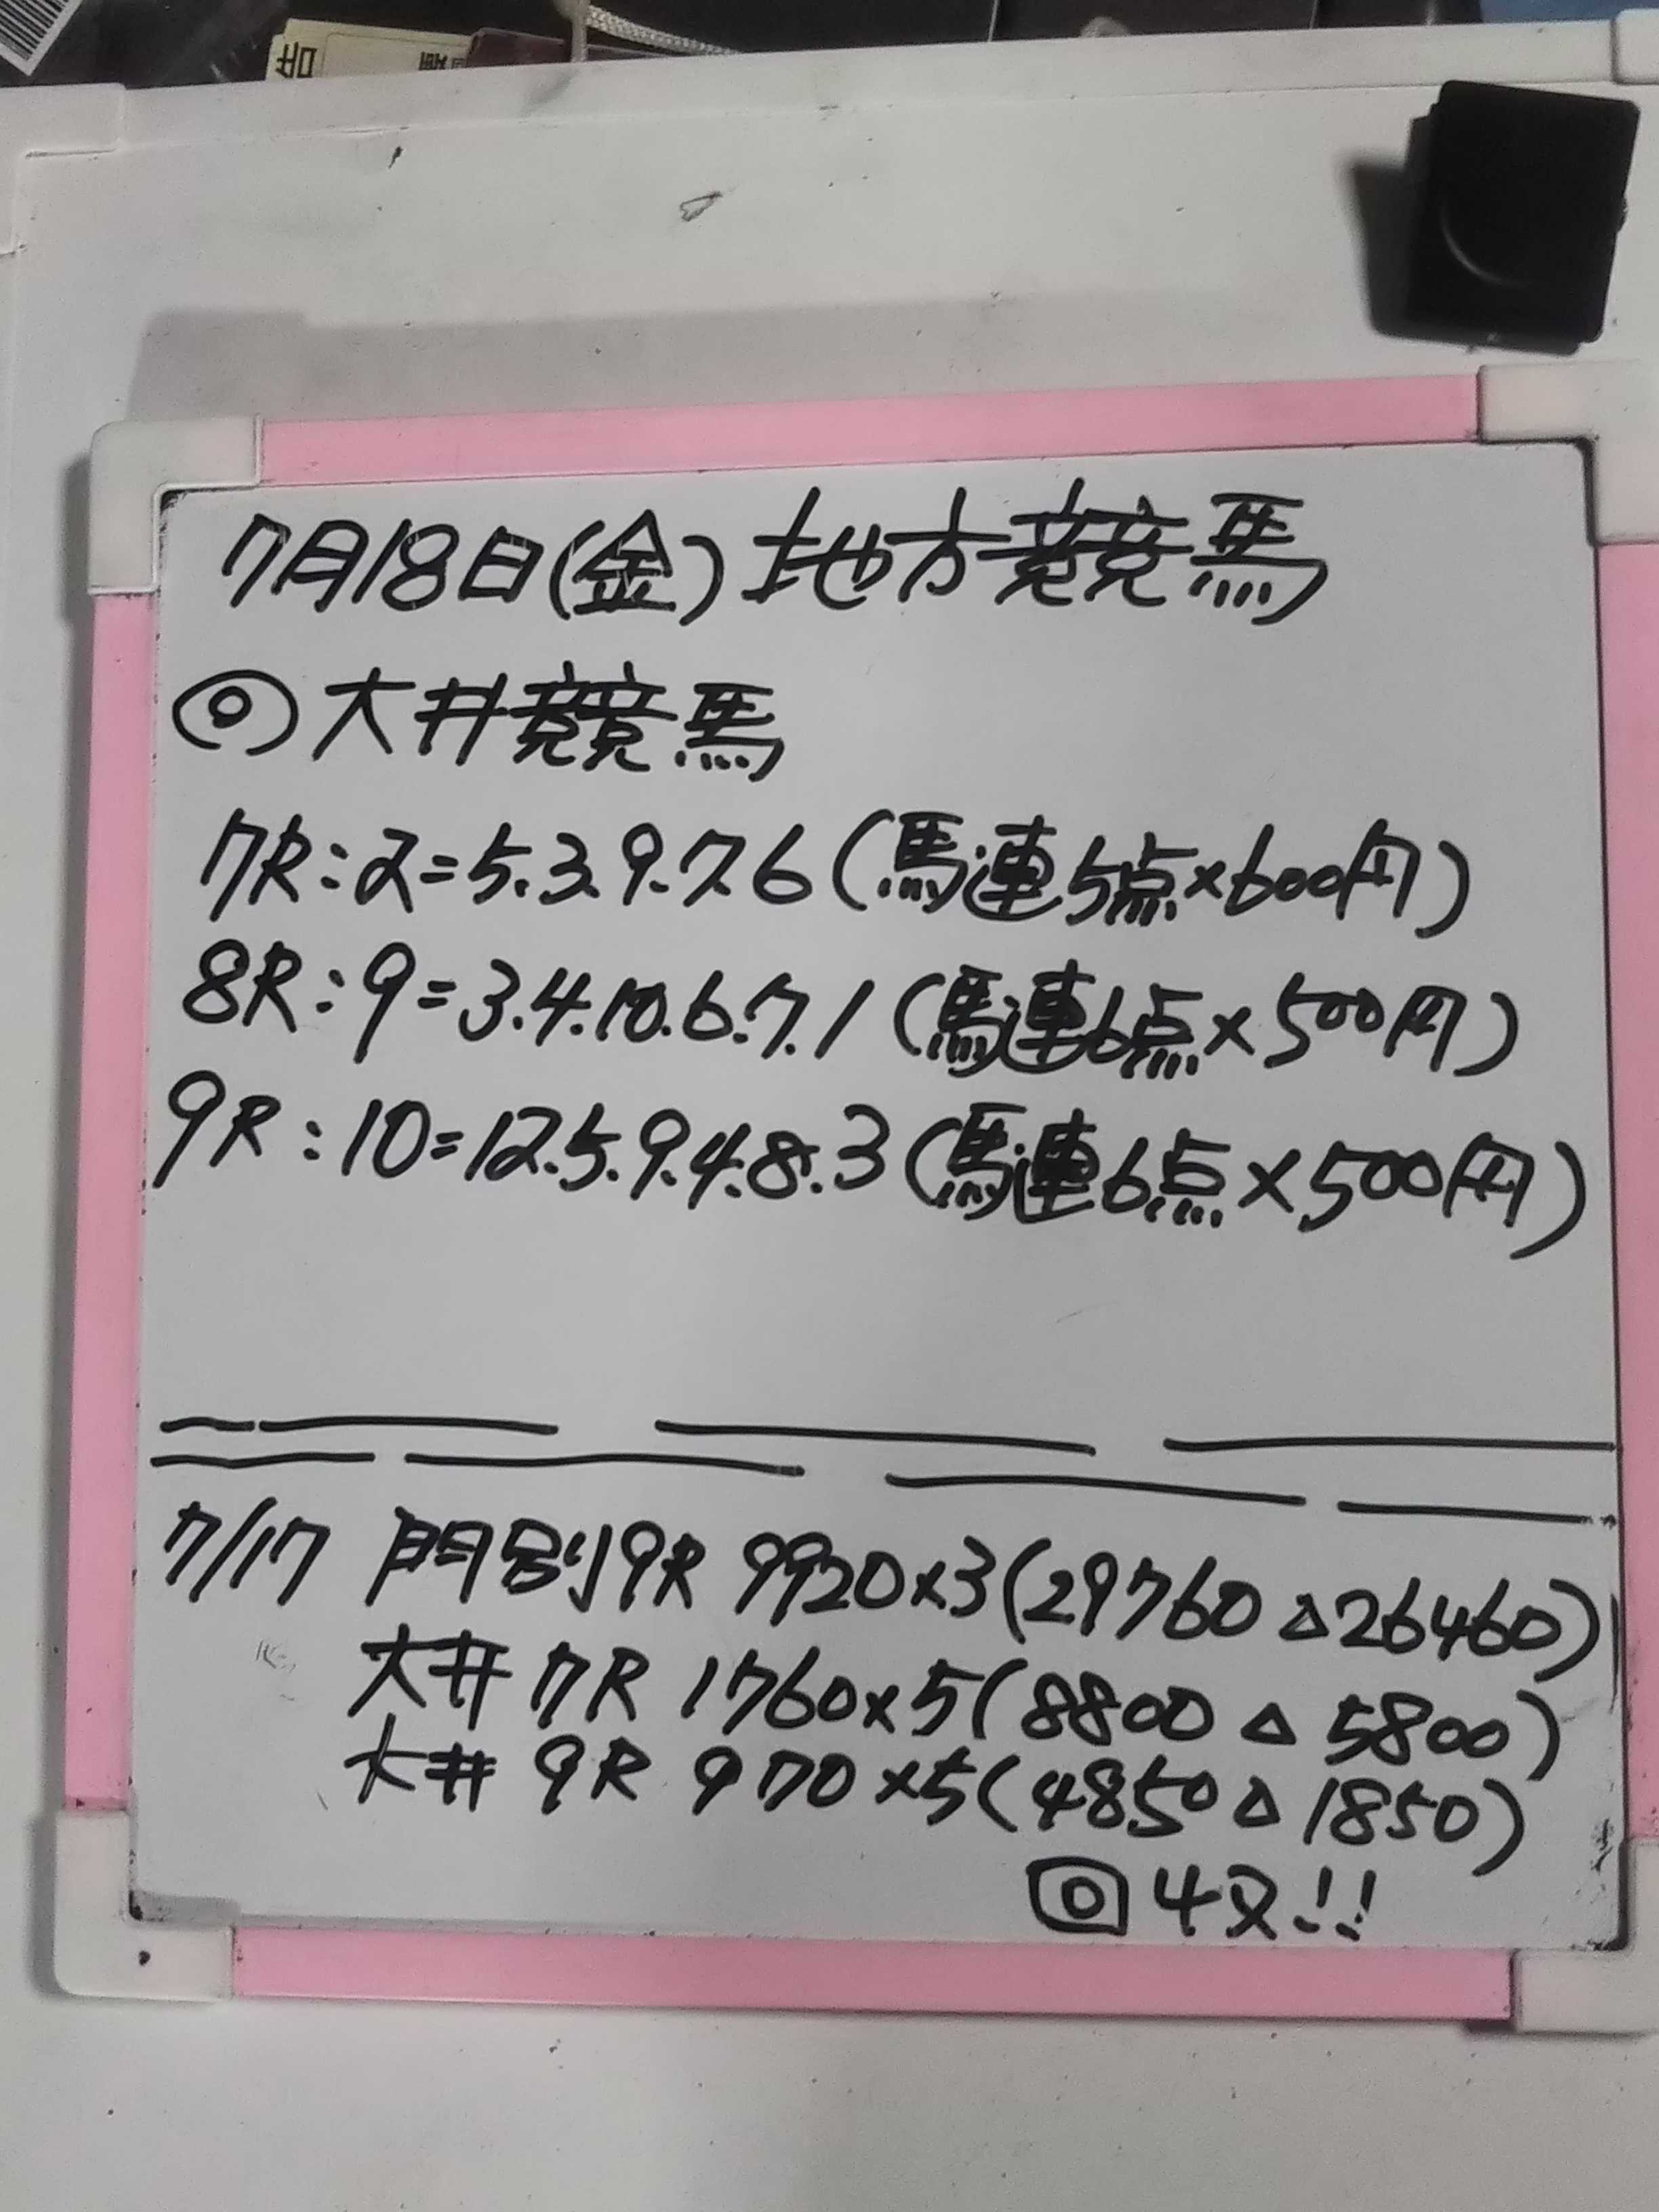 7月18日(金)地方競馬
◎大井競馬
7R:2=5.3.9.7.6(馬連5点×600円)
8R:9=3.4.10.6.7.1(馬連6点×500円)
9R:10=12.5.9.4.8.3(馬連6点×500円)
7/17 門別9R 9920×3(29760△26460)
大井7R 1760×5(8800△5800)
大井9R 970×5(4850△1850)
回収!!